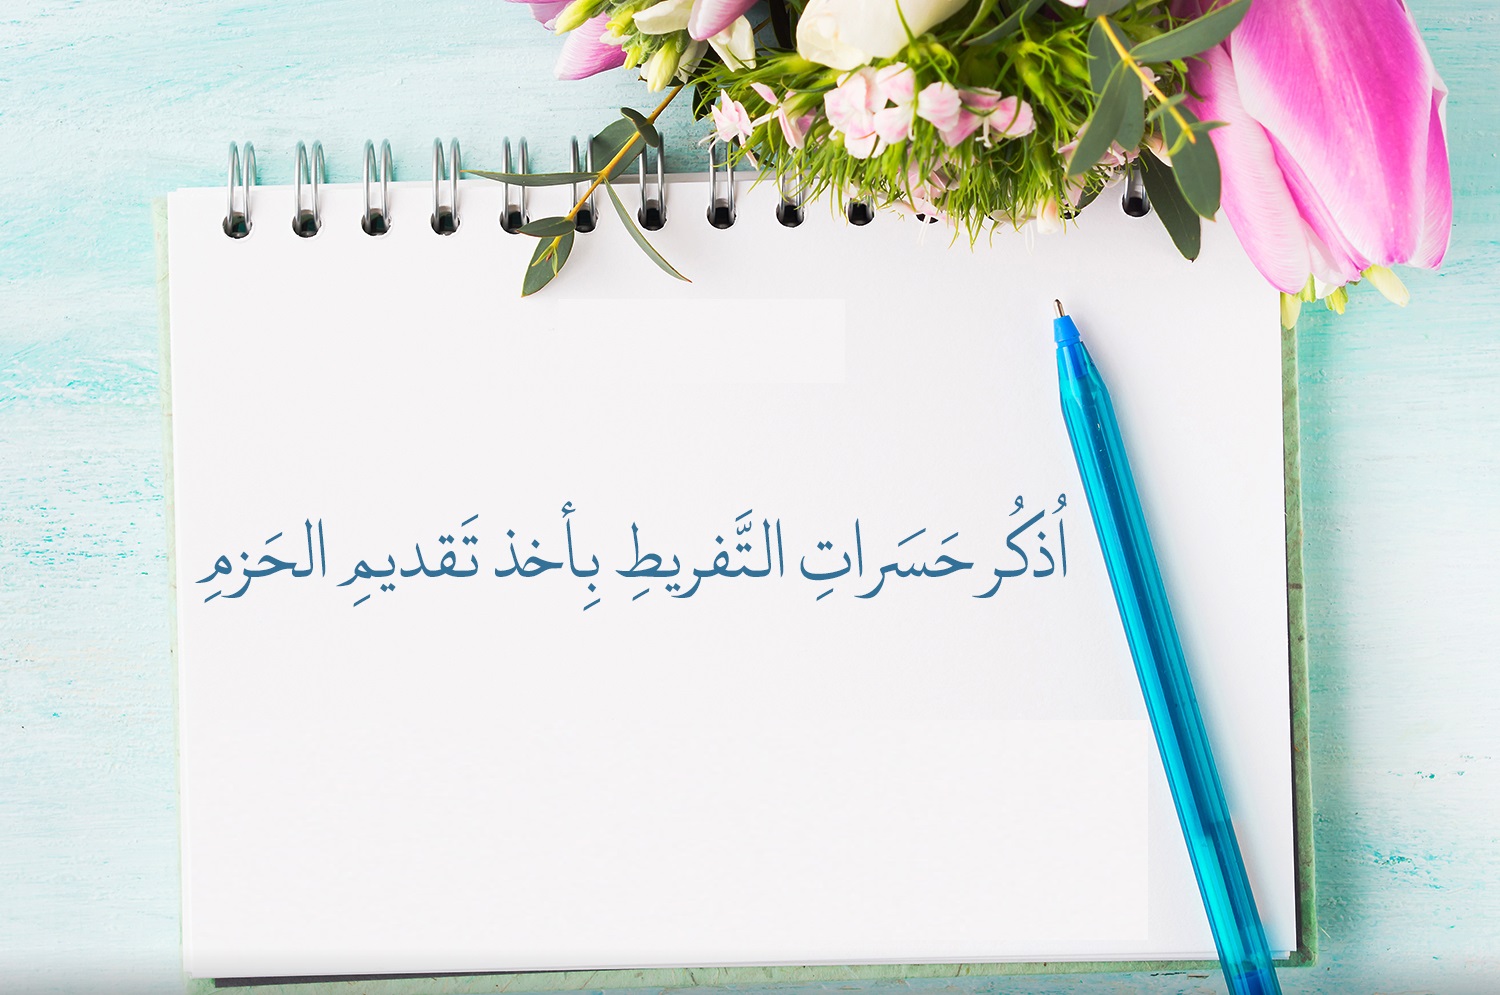 اُذكُر حَسَراتِ التَّفريطِ بِأخذ تَقديمِ الحَزمِ